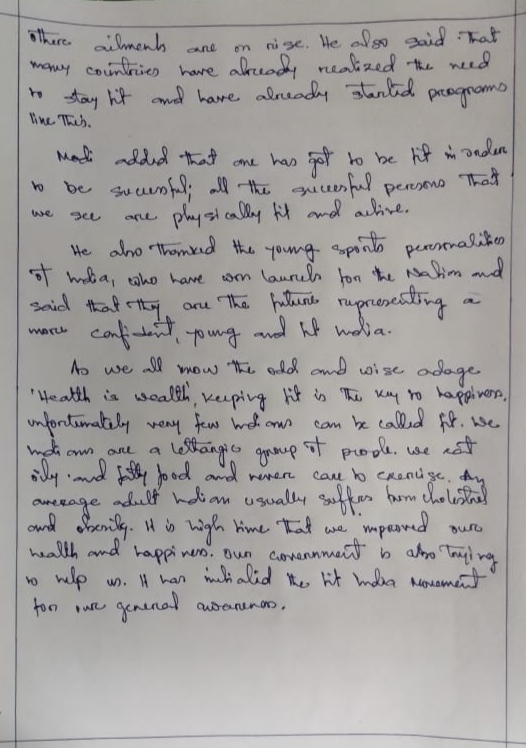 others ailments are on rise. He also said that
many countries have already realized the need
to stay fit and have already started programs
line this.
Modi added that one has got to be fit in order
to be sucussful; all the succesful persons that
we see are physically fit and active.
He also thanked the young sports personalities
of India, who have won laurels for the Nation and
said that they are the future representing a
more confident, young and fit India.
As we all know the old and wise adage
'Health is wealth', keeping fit is the key to happiness.
unfortunately very few Indians can be called fit. We
Indians are a lethargic group of people. we eat
oily and fatty food and never care to exercise. An
average adult Indian usually suffers from cholestrol
and obesity. It is high time that we improved our
health and happiness. our government is also trying
to help us. It has initialid the fit India movement
for our general awareness.